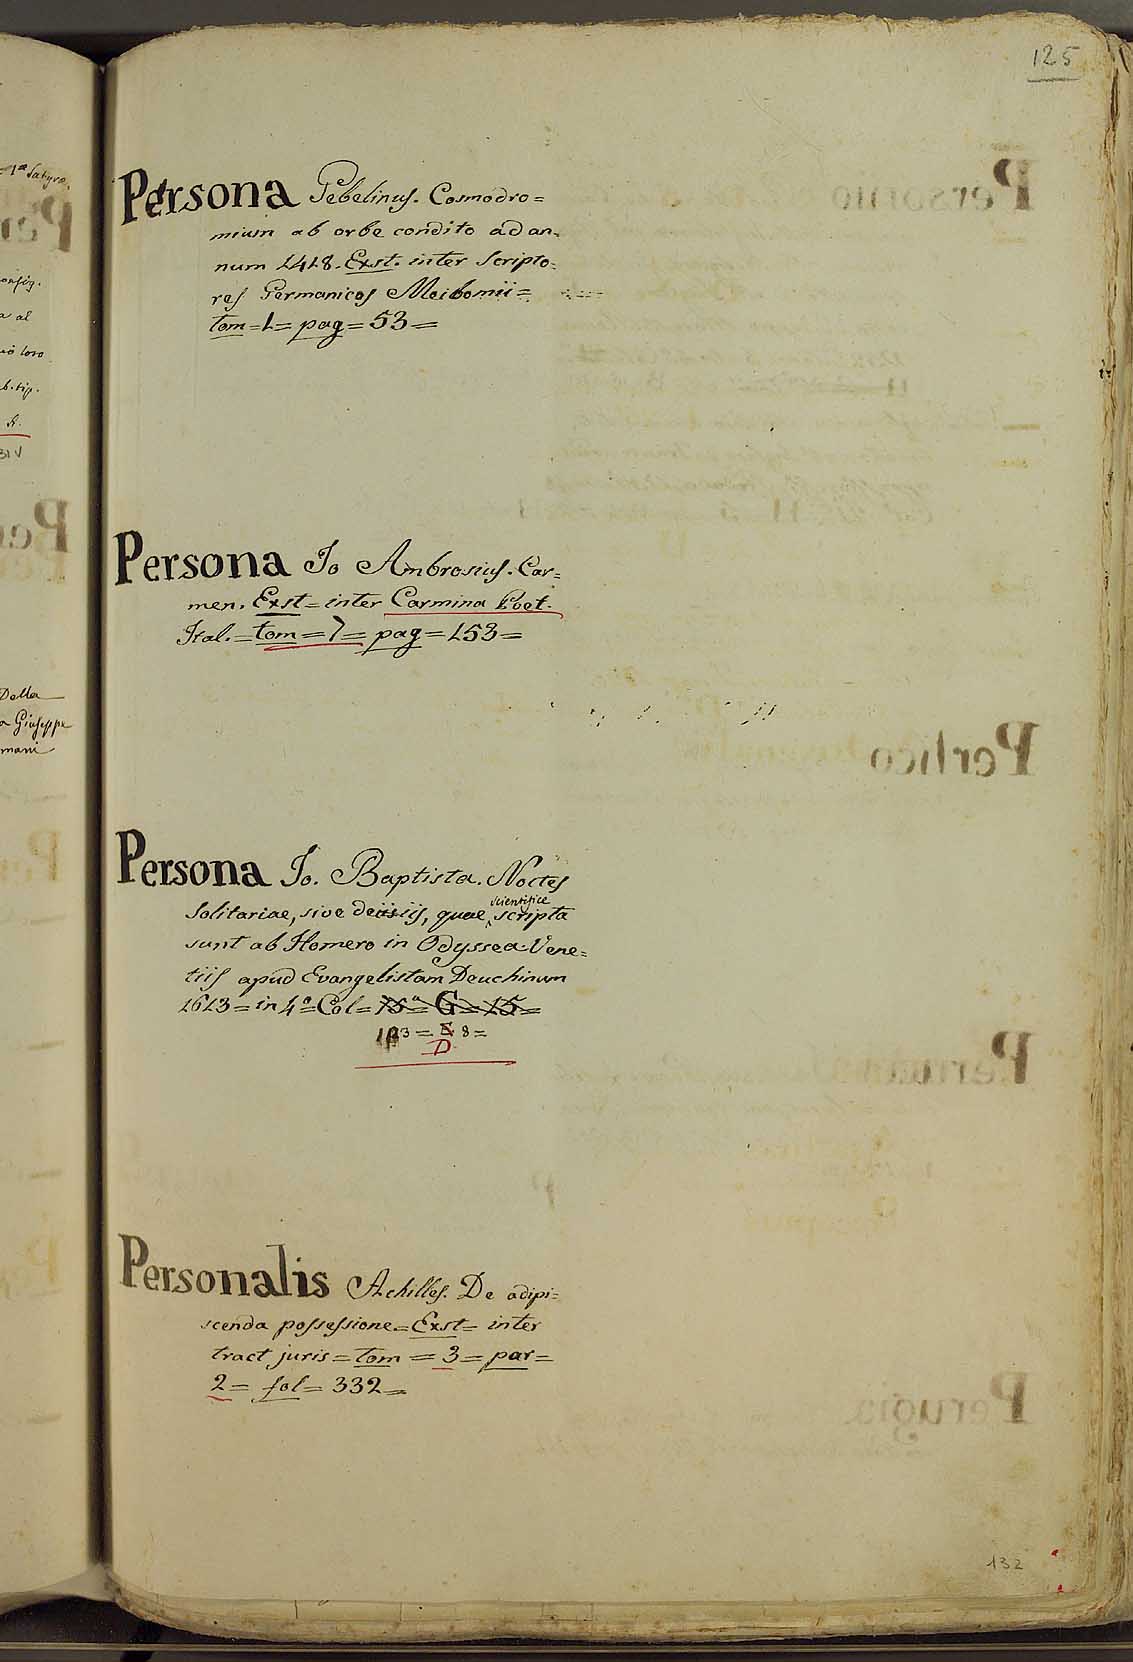 125
Persona Gebelinus. Cosmodro=
mium ab orbe condito ad an=
num 1418. Exst. inter Scripto=
res Germanicos Meibomii=
tom=1=pag=53=
Persona Jo Ambrosius. Car=
men. Exst=inter Carmina Poet.
Ital.=tom=7=pag=153=
Persona Jo. Baptista. Noctes
Solitariae, sive de iis, quae scientifice scripta
sunt ab Homero in Odyssea. Vene=
tiis apud Evangelistam Deuchinum
1613=in 4°=Col=15ª=G=15=
D 8=
Personalis Achilles. De adipi=
scenda possessione=Exst=inter
tract juris=tom=3=par=
2=fol=332=
132
1ª Satyra.
a al
loro
b. tip.
Della
a Giuseppe
mani